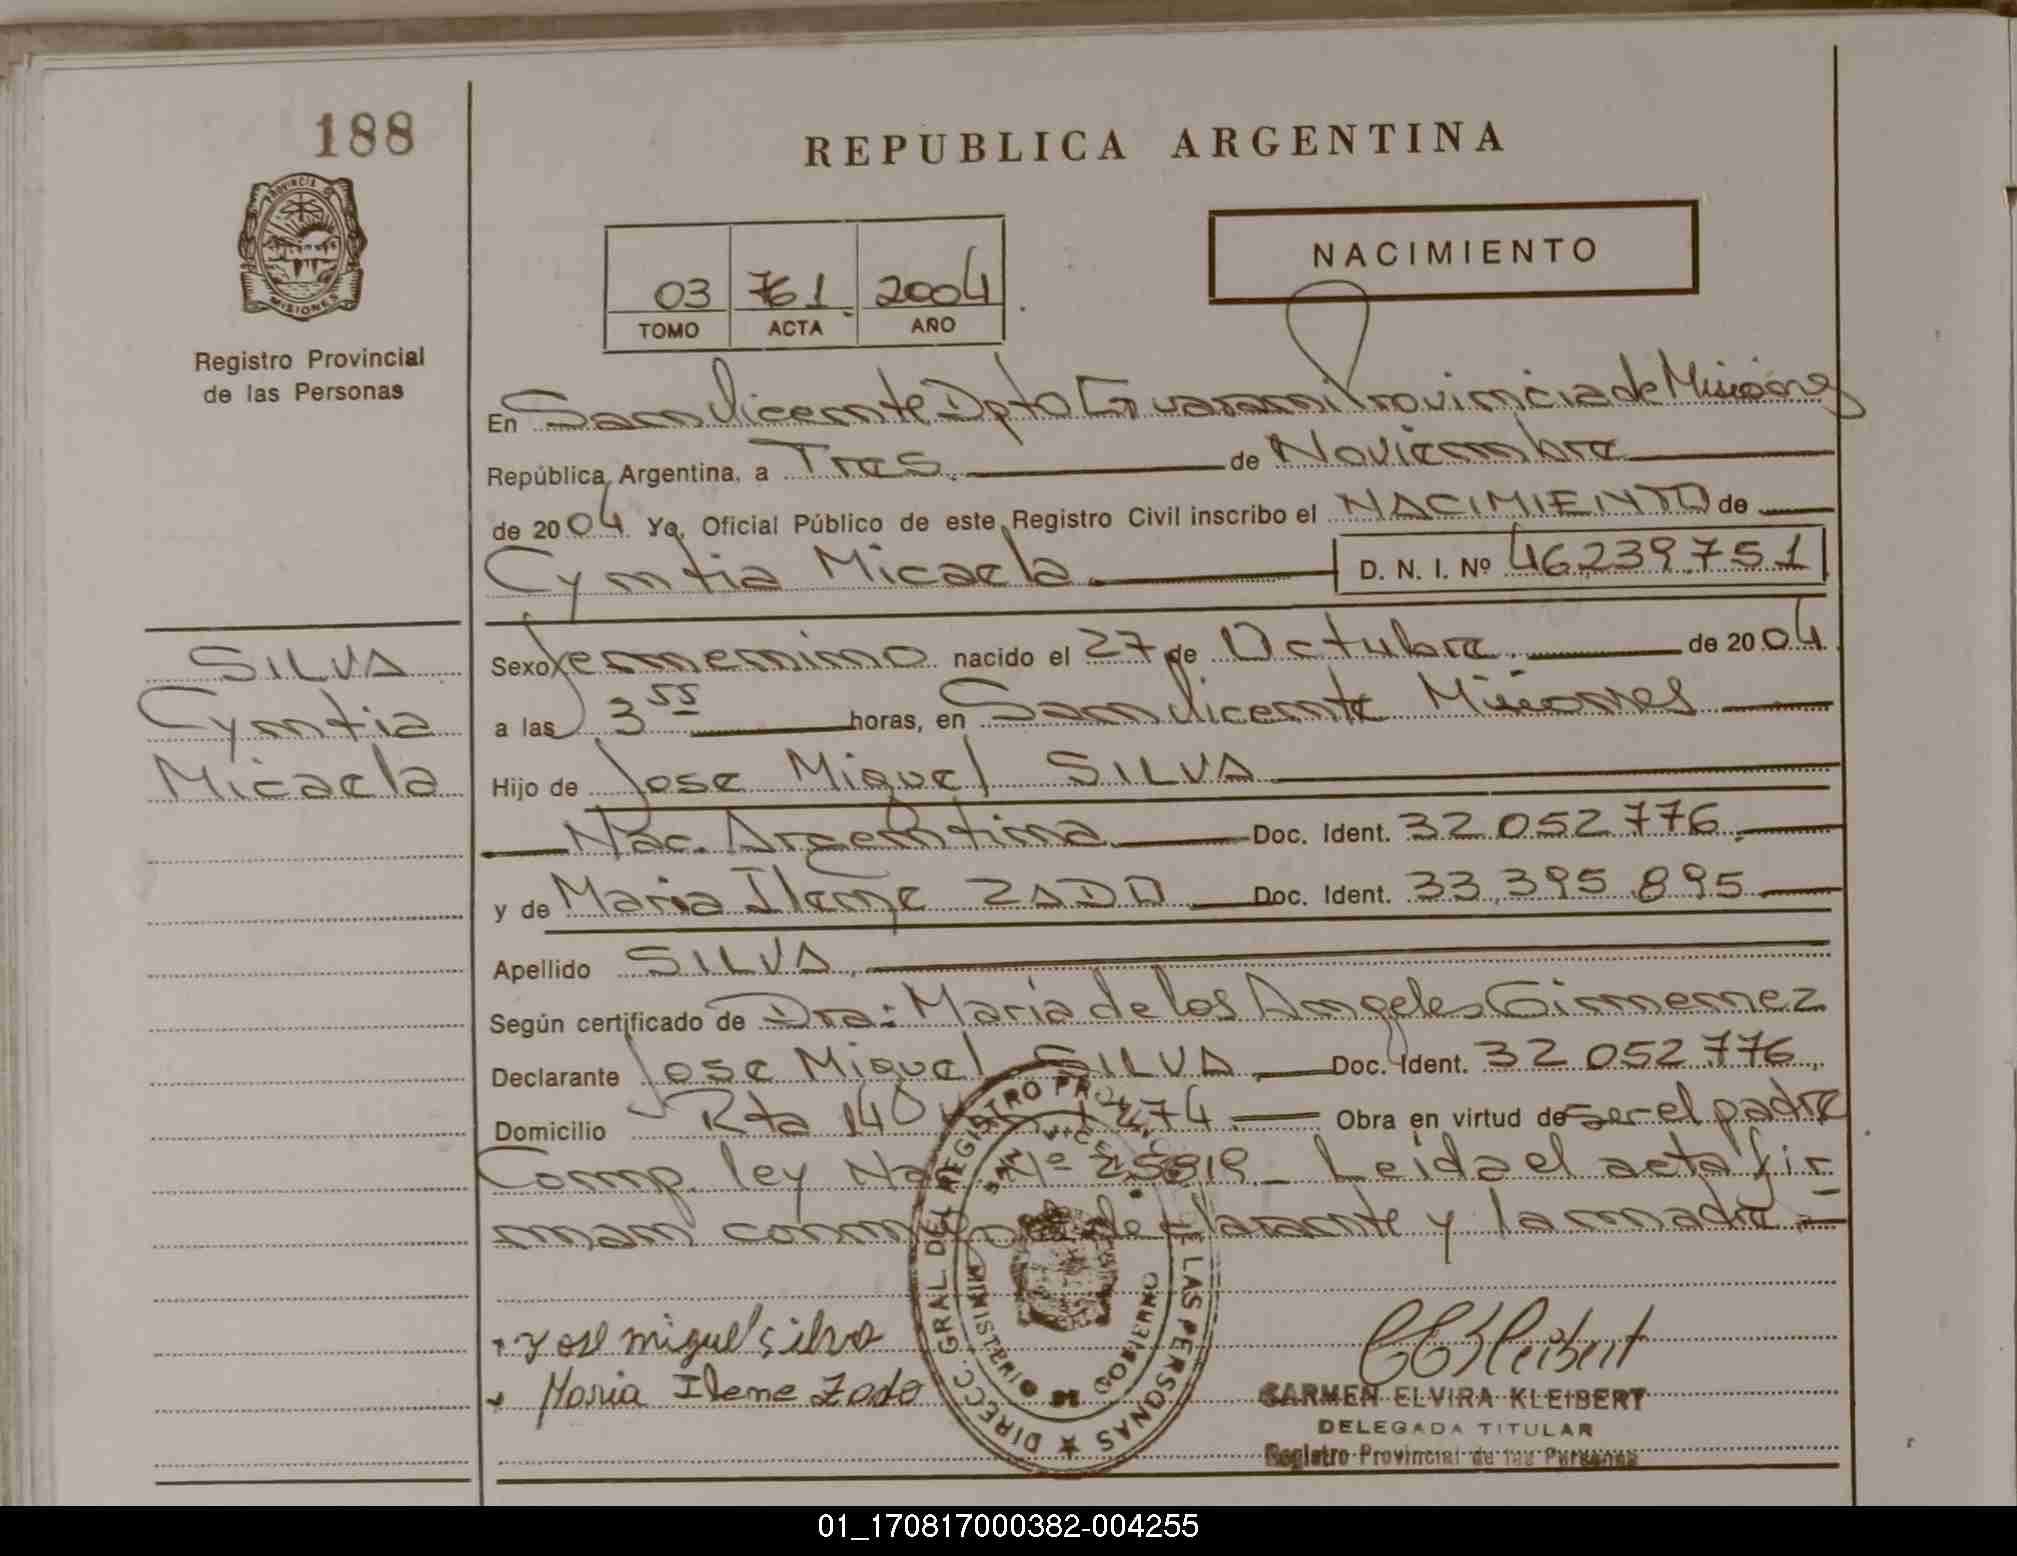 188
REPUBLICA ARGENTINA
PROVINCIA DE MISIONES
Registro Provincial
de las Personas
NACIMIENTO
03 761 2004
TOMO ACTA AÑO
En San Vicente Dpto Guarani Provincia de Misiones
República Argentina, a Tres de Noviembre
de 2004 Yo, Oficial Público de este Registro Civil inscribo el NACIMIENTO de
Cyntia Micaela D. N. I. Nº 46.239.751
SILVA
Cyntia
Micaela
Sexo femenino nacido el 27 de Octubre de 2004
a las 3 55 horas, en San Vicente Misiones
Hijo de Jose Miguel SILVA
Nac. Argentina Doc. Ident. 32 052 776
y de Maria Ilene ZADO Doc. Ident. 33.395.895
Apellido SILVA
Según certificado de Dra: Maria de los Angeles Gimenez
Declarante Jose Miguel SILVA Doc. Ident. 32 052 776
Domicilio Rta 14 1274 Obra en virtud de ser el padre
Comp. ley Nac Nº 25819 _ Leida el acta fir
man conmigo el declarante y la madre.=
Jose miguel silva
Maria Ilene Zado
DIRECC. GRAL. DEL REGISTRO PROV. DE LAS PERSONAS
SAN VICENTE
MINISTERIO DE GOBIERNO
CEKleibert
CARMEN ELVIRA KLEIBERT
DELEGADA TITULAR
Registro Provincial de las Personas
01_170817000382-004255